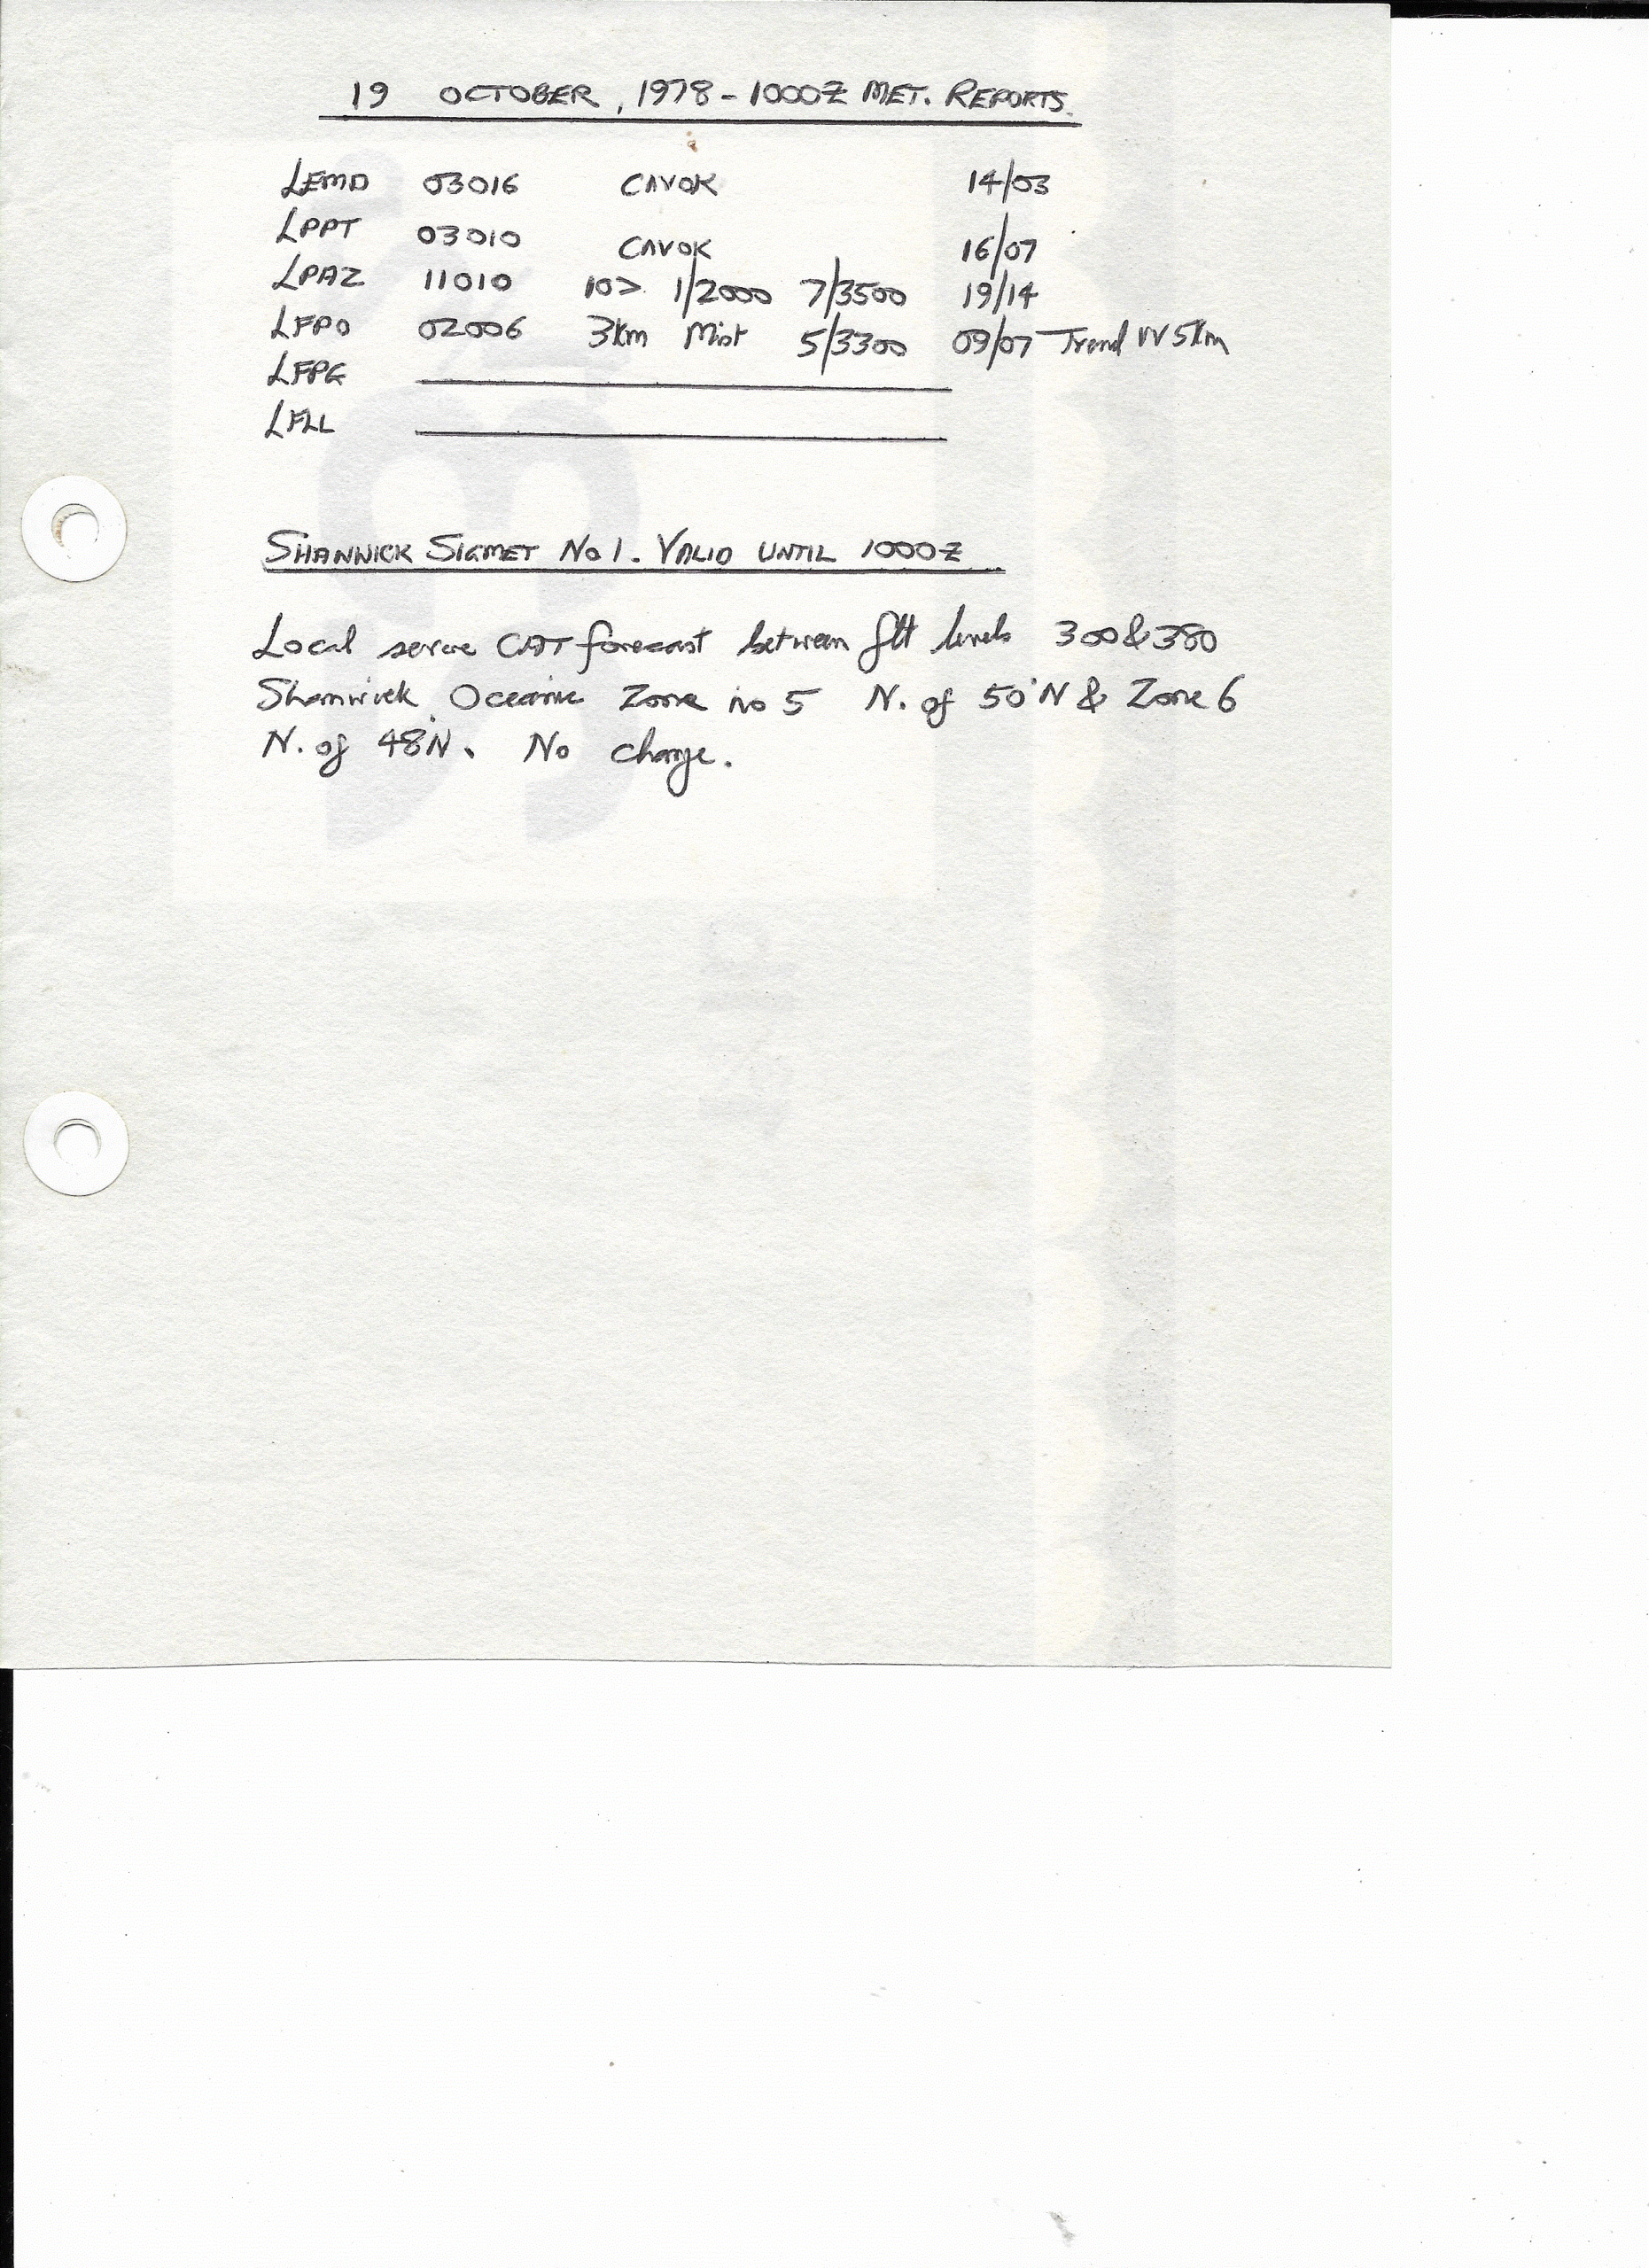 19 OCTOBER, 1978 - 1000Z MET. REPORTS.
LEMD 03016 CAVOK 14/03
LPPT 03010 CAVOK 16/07
LPAZ 11010 10> 1/2000 7/3500 19/14
LFPO 02006 3km Mist 5/3300 09/07 Trend VV 5Km
LFPG
LFLL
SHANWICK SIGMET No 1. VALID UNTIL 1000Z
Local severe CAT forecast between flt levels 300 & 380
Shanwick Oceanic Zone no 5 N. of 50°N & Zone 6
N. of 48°N. No change.